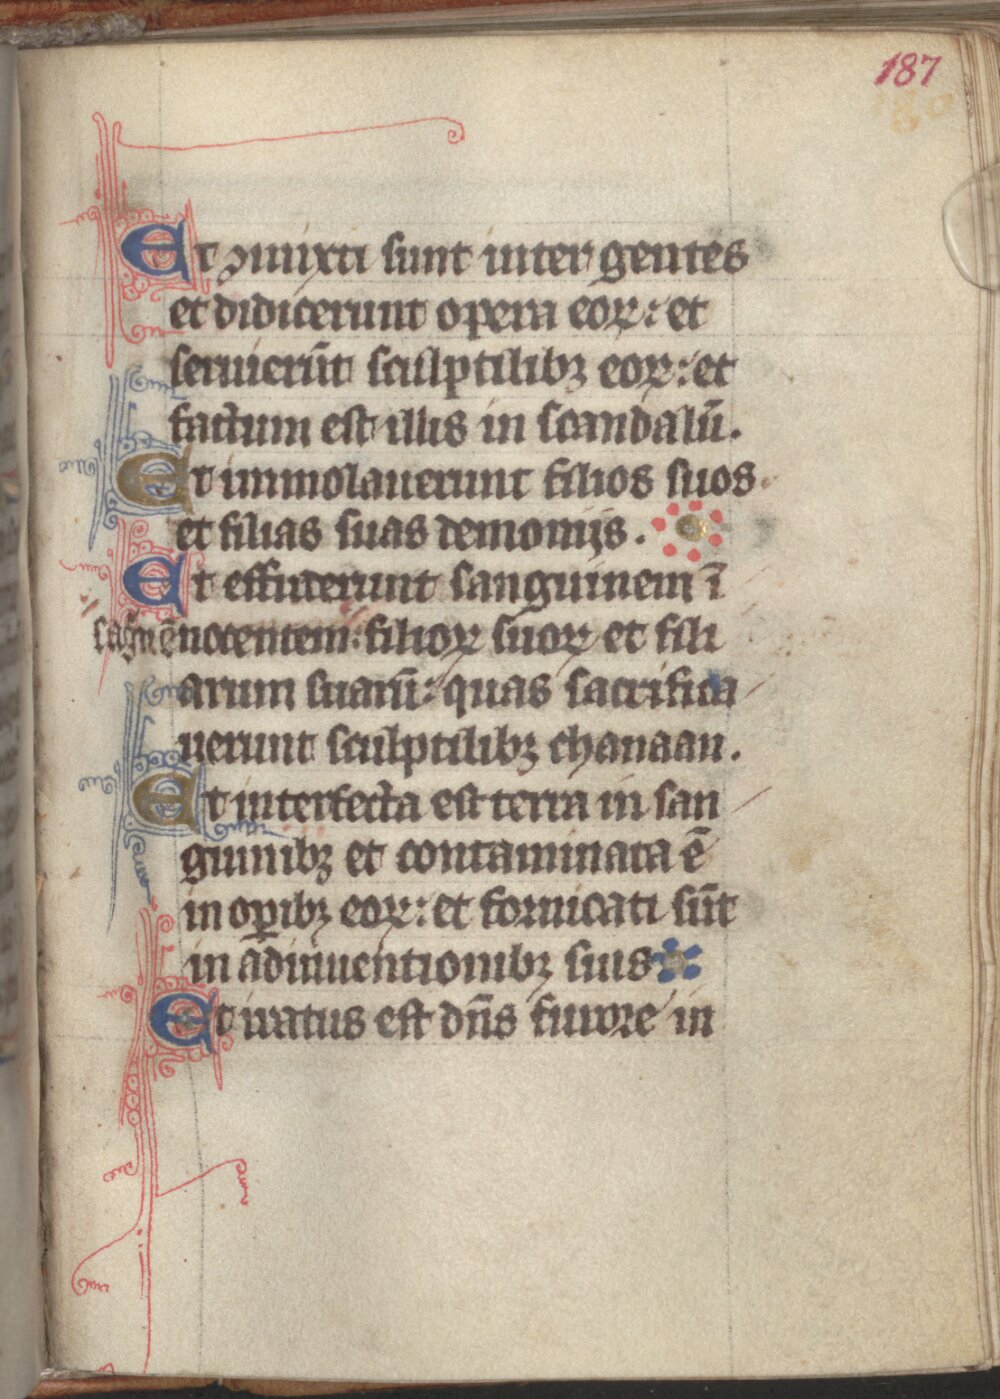 187
Et ꝯmixti sunt inter gentes
et didicerunt opera eoꝝ: et
seruierūt sculptilibꝫ eoꝝ: et
factum est illis in scandalū.
Et immolauerunt filios suos
et filias suas demonijs.
Et effuderunt sanguinem ī
nocentem: filioꝝ suoꝝ et fili
arum suarū: quas sacrifica
uerunt sculptilibꝫ chanaan.
Et interfecta est terra in san
guinibꝫ et contaminata ē
in oꝑibꝫ eoꝝ: et fornicati sūt
in adinuentionibꝫ suis
Et iratus est dn̄s furore in